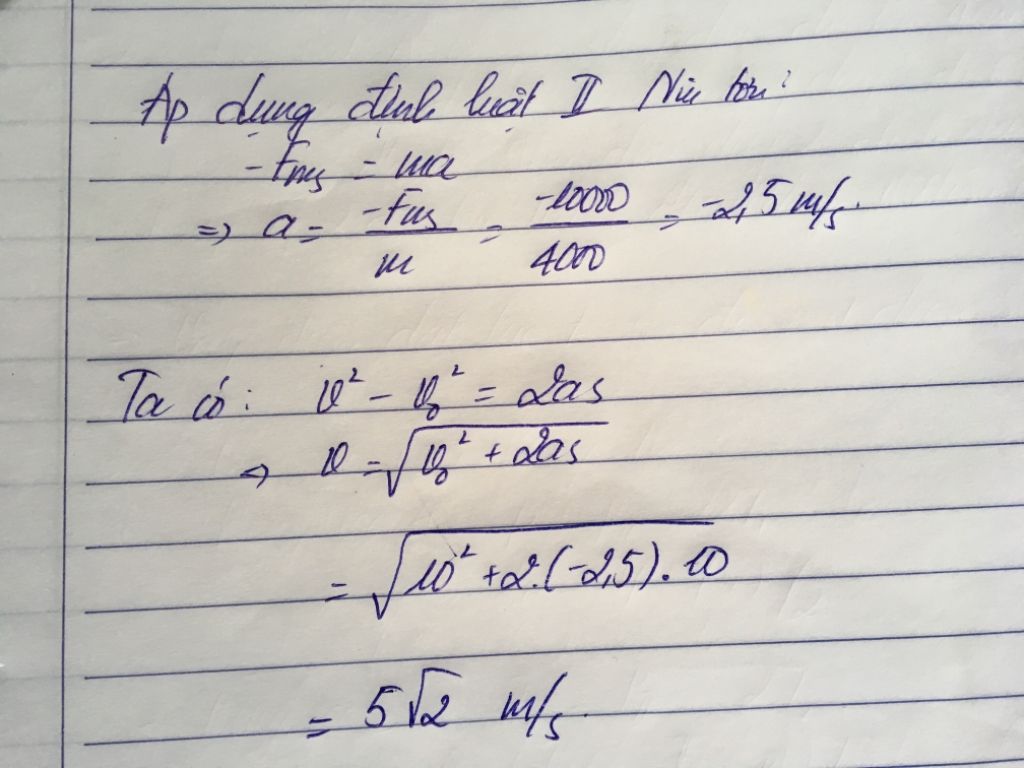 Áp dụng định luật II Niu tơn:
-Fms = ma
=> a = -Fms/m = -10000/4000 = -2,5 m/s.
Ta có: v² - v₀² = 2as
=> v = √(v₀² + 2as)
= √(10² + 2.(-2,5).10)
= 5√2 m/s.